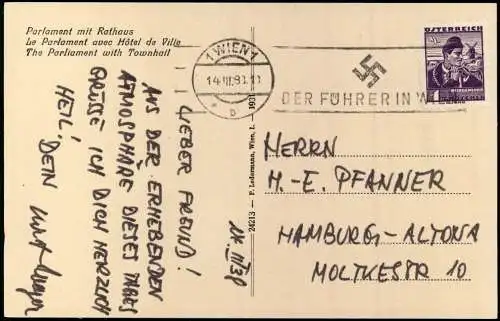 Parlament mit Rathaus
Le Parlament avec Hôtel de Ville
The Parliament with Townhall
1 WIEN 1
14.III.38
b
DER FÜHRER IN WIEN
ÖSTERREICH
24213 — P. Ledermann, Wien, I.
14 III 38
LIEBER FREUND!
AUS DER ERHEBENDEN
ATMOSPHÄRE DIESES TAGES
GRÜSSE ICH DICH HERZLICH
HEIL!
DEIN
HERRN
H.-E. PFANNER
HAMBURG-ALTONA
MOLTKESTR 10